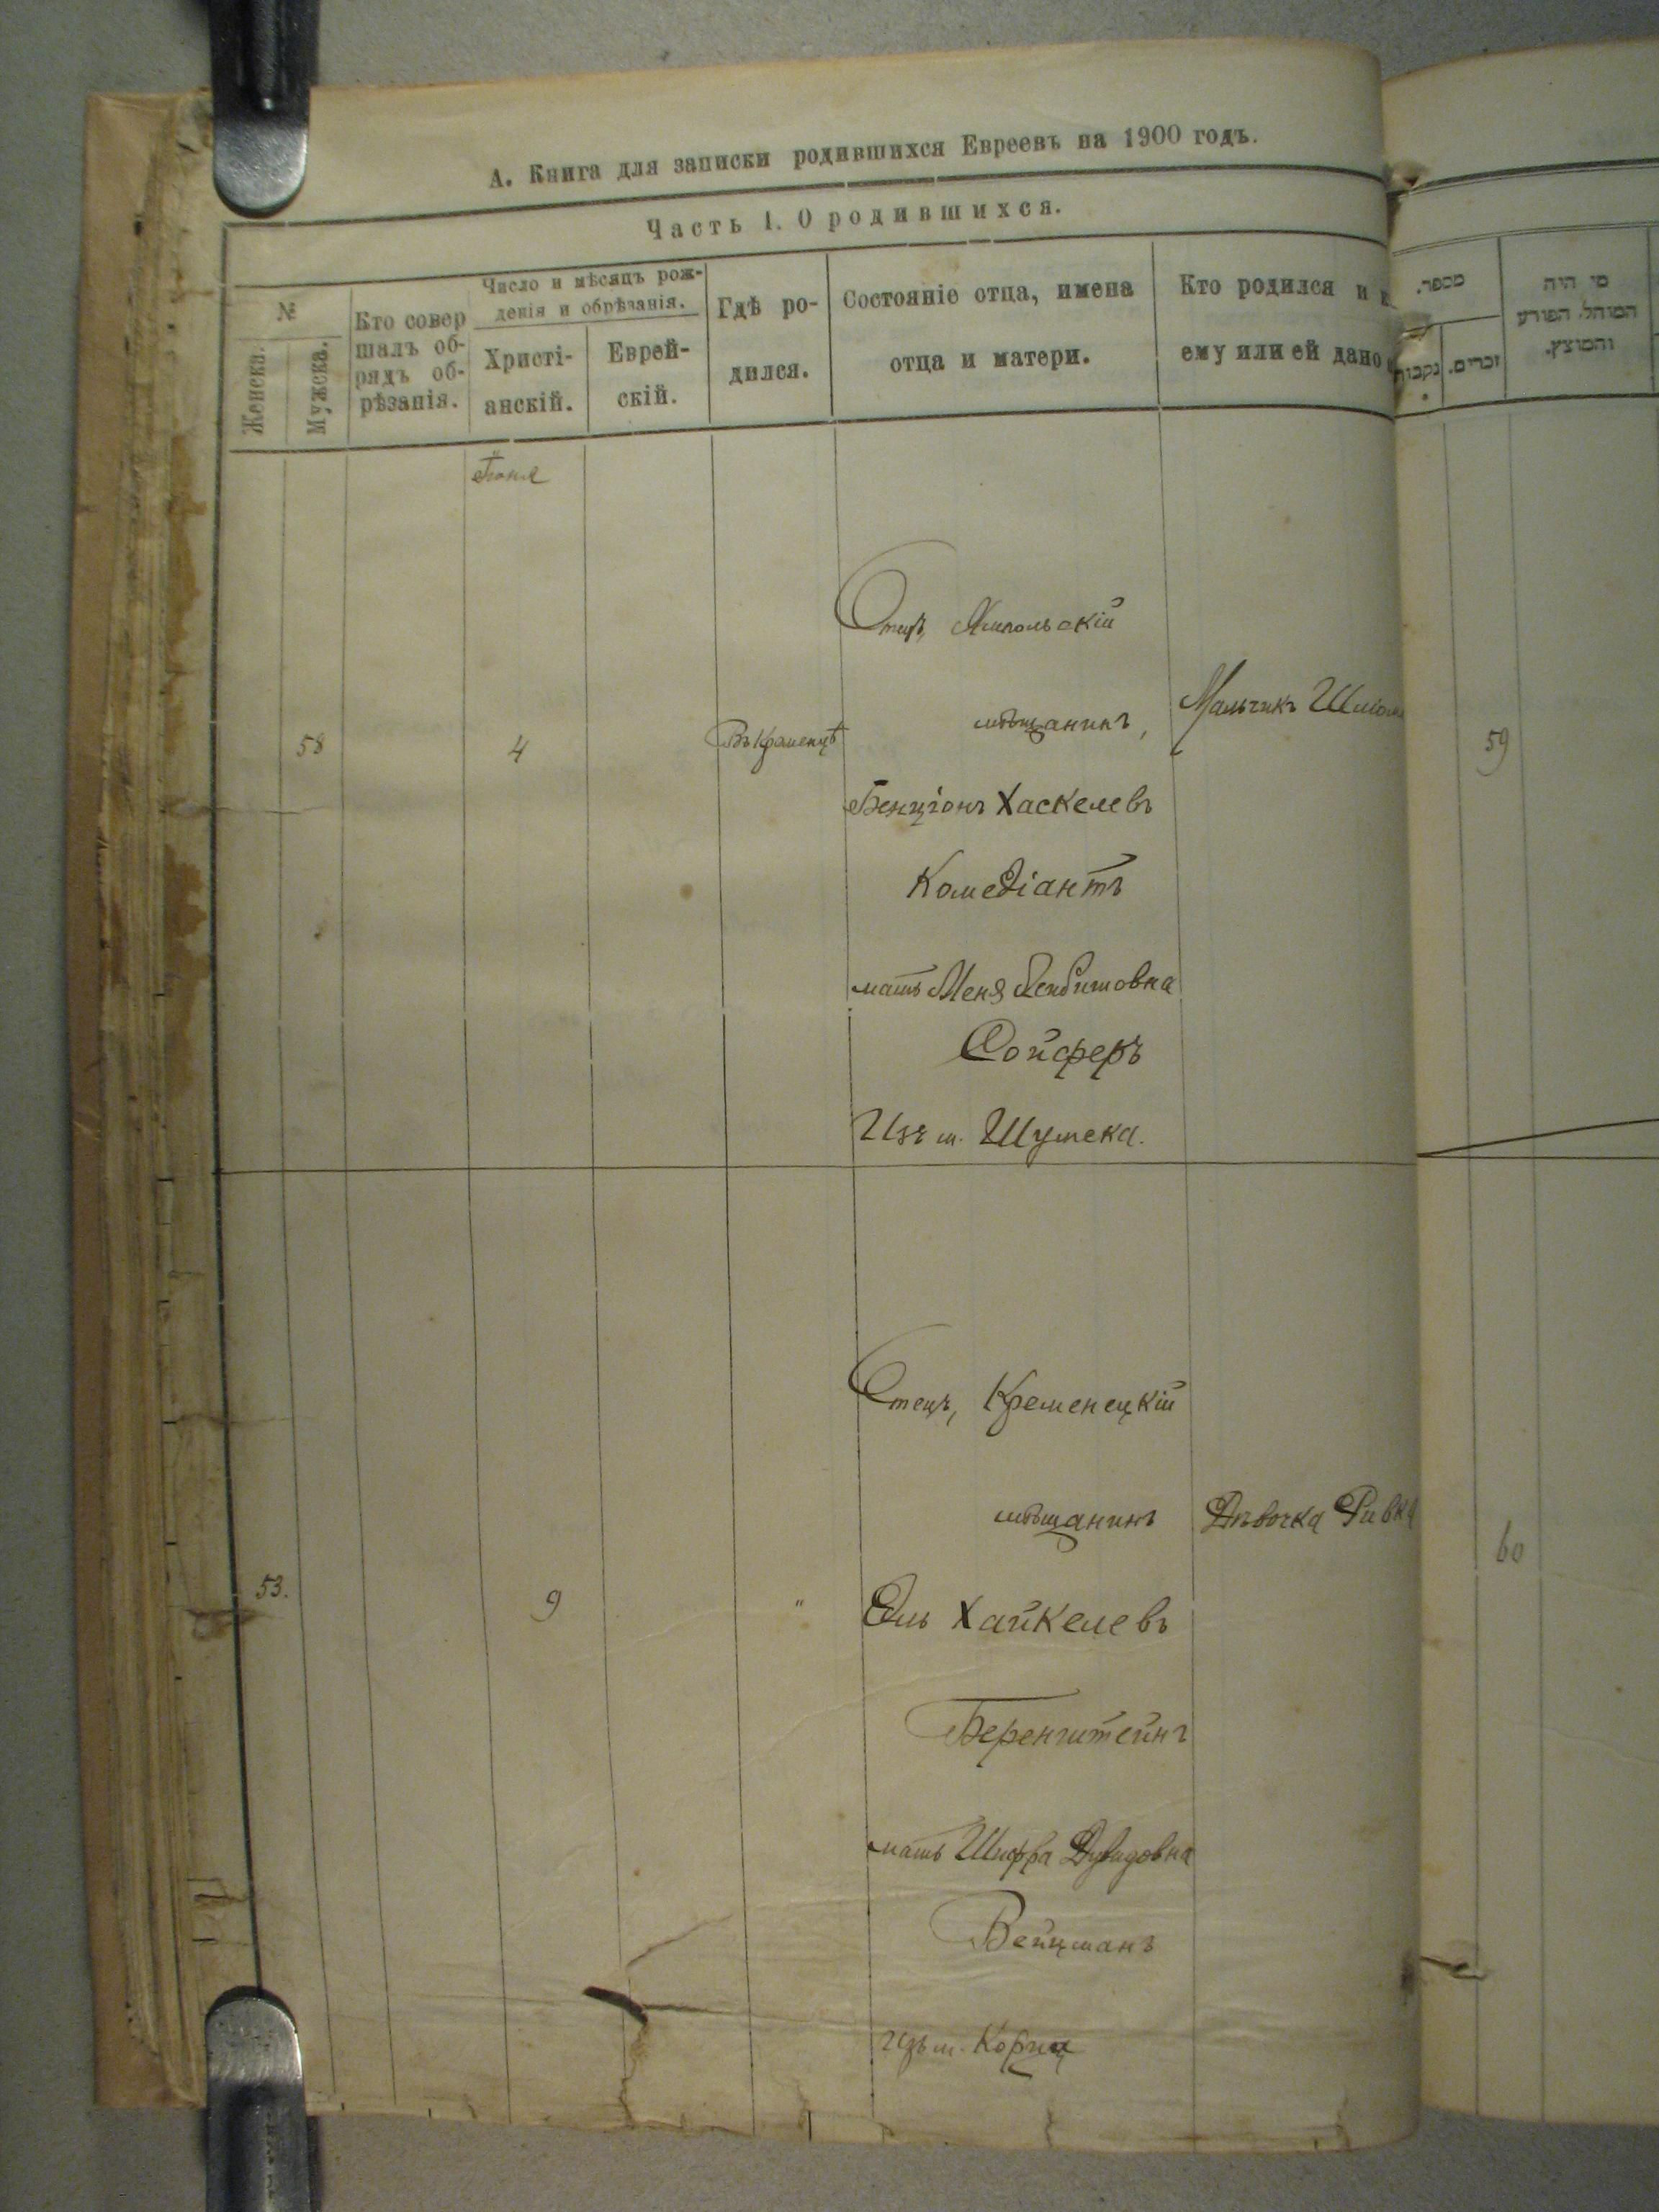 А. Книга для записки родившихся Евреевъ на 1900 годъ.
Часть I. О родившихся.
№
Женска.
Мужска.
Кто совер
шалъ об-
рядъ об-
рѣзанія.
Число и мѣсяцъ рож-
денія и обрѣзанія.
Христі-
анскій.
Еврей-
скій.
Гдѣ ро-
дился.
Состояніе отца, имена
отца и матери.
Кто родился и
ему или ей дано
מספר.
נקבות
זכרים.
מי היה
המוהל הפורע
והמוצץ.
Іюня
58
4
Въ Кременцѣ
Отецъ, Ямпольскій
мѣщанинъ,
Бенціонъ Хаскелевъ
Комедіантъ
мать Меня Лейбишовна
Сойферъ
Изъ м. Шумска.
Мальчикъ
59
53.
9
"
Отецъ, Кременецкій
мѣщанинъ
Эль Хайкелевъ
Беренштейнъ
мать Шифра Дувидовна
Вейцманъ
изъ м. Корец
Дѣвочка Ривка
60